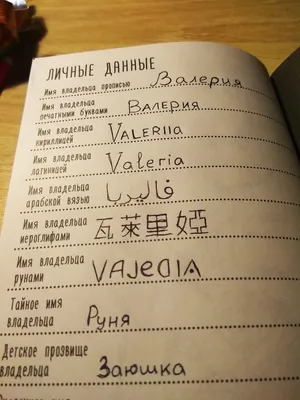 ЛИЧНЫЕ ДАННЫЕ
Имя владельца прописью Валерия
Имя владельца
печатными буквами ВАЛЕРИЯ
Имя владельца
кириллицей VALERIIa
Имя владельца
латиницей Valeria
Имя владельца
арабской вязью فاليريا
Имя владельца
иероглифами 瓦萊里婭
Имя владельца
рунами VAJEDIA
Тайное имя
владельца Руня
Детское прозвище
владельца Заюшка